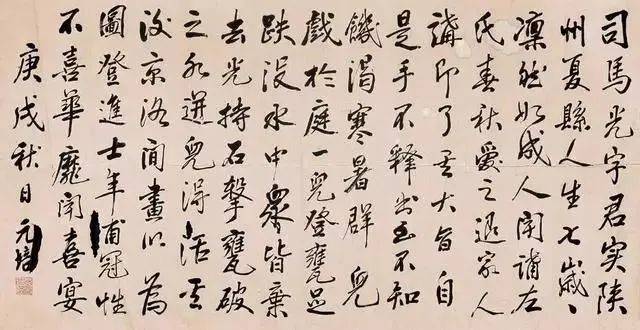 司馬光字君實陝
州夏縣人生七歲、
凜然如成人聞講左
氏春秋愛之退家人
講即了其大旨自
是手不釋書至不知
饑渴寒暑群兒
戲於庭一兒登甕足
跌沒水中眾皆棄
去光持石擊甕破
之水迸兒得活其
後京洛間畫以為
圖登進士年甫冠性
不喜華靡聞喜宴
庚戌秋日元培